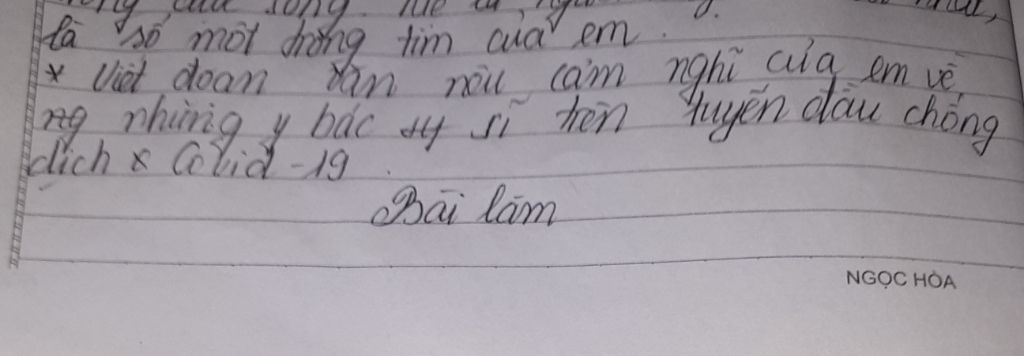 là số một trong tim của em.
* Viết đoạn văn nêu cảm nghĩ của em về
những y bác sĩ trên tuyến đầu chống
dịch Covid-19.
Bài làm
NGỌC HÒA